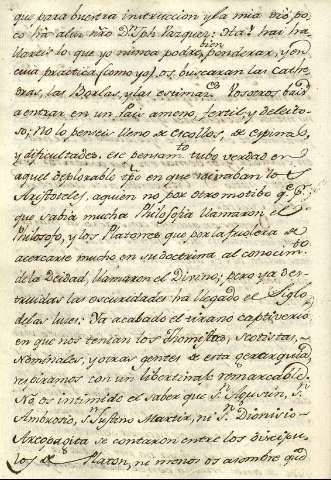 que para buestra instruccion y la mia dió, po
co ha a luz
lo que yo nunca podre bien ponderar, y en
cuia practica (como yo) os buscaran las Cathe
dras, las Borlas, y las estimac.es Vosotros bais
a entrar en un Pais ameno, fertil, y deleito
so; No lo penseis lleno de escollos, de espinas,
y dificultades, ese pensam.to tubo verdad en
aquel deplorable tpo en que reinaban los
Aristoteles, a quien no por otro motibo q.e p.r
que sabia mucha Philosofia llamaron el
Philosofo, y los Platones que por la
acercarse mucho en su doctrina al conocim.to
de la Deidad, llamaron el Divino; pero ya des
truidas las oscuridades ha llegado el Siglo
de las luces: Ya acabado el tirano captiverio
en que nos tenian los Thomistas, Scotistas,
Nominales, y otras gentes de esta gerarquia,
respiramos con un libertinaje remarcable
No, os intimide el saber que S.n Agustin, S.n
Ambrosio, S.n Justino Martir, ni S.n Dionisio
Areopagita se contaron entre los Discipu
los de Platon, ni menos os asombre que